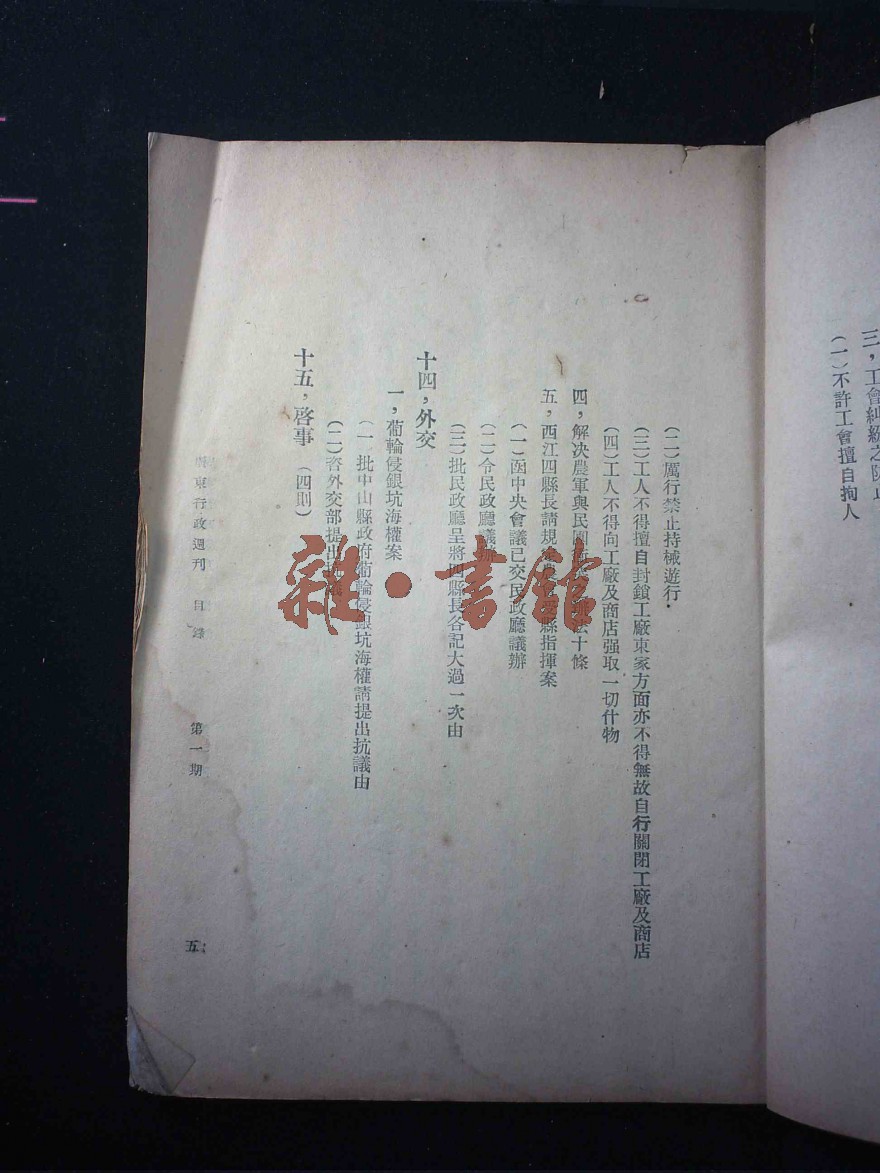 三，工會糾紛之防止
（一）不許工會擅自拘人
（二）厲行禁止持械遊行
（三）工人不得擅自封鎖工廠東家方面亦不得無故自行關閉工廠及商店
（四）工人不得向工廠及商店强取一切什物
四，解决農軍與民團法十條
五，西江四縣長請規縣指揮案
（一）函中央會議已交民政廳議辦
（二）令民政廳議辦
（三）批民政廳呈將四縣長各記大過一次由
十四，外交
一，葡輪侵銀坑海權案
（一）批中山縣政府葡輪侵銀坑海權請提出抗議由
（二）咨外交部提出
十五，啓事（四則）
東行政週刊 目錄 第一期 五
雜·書館